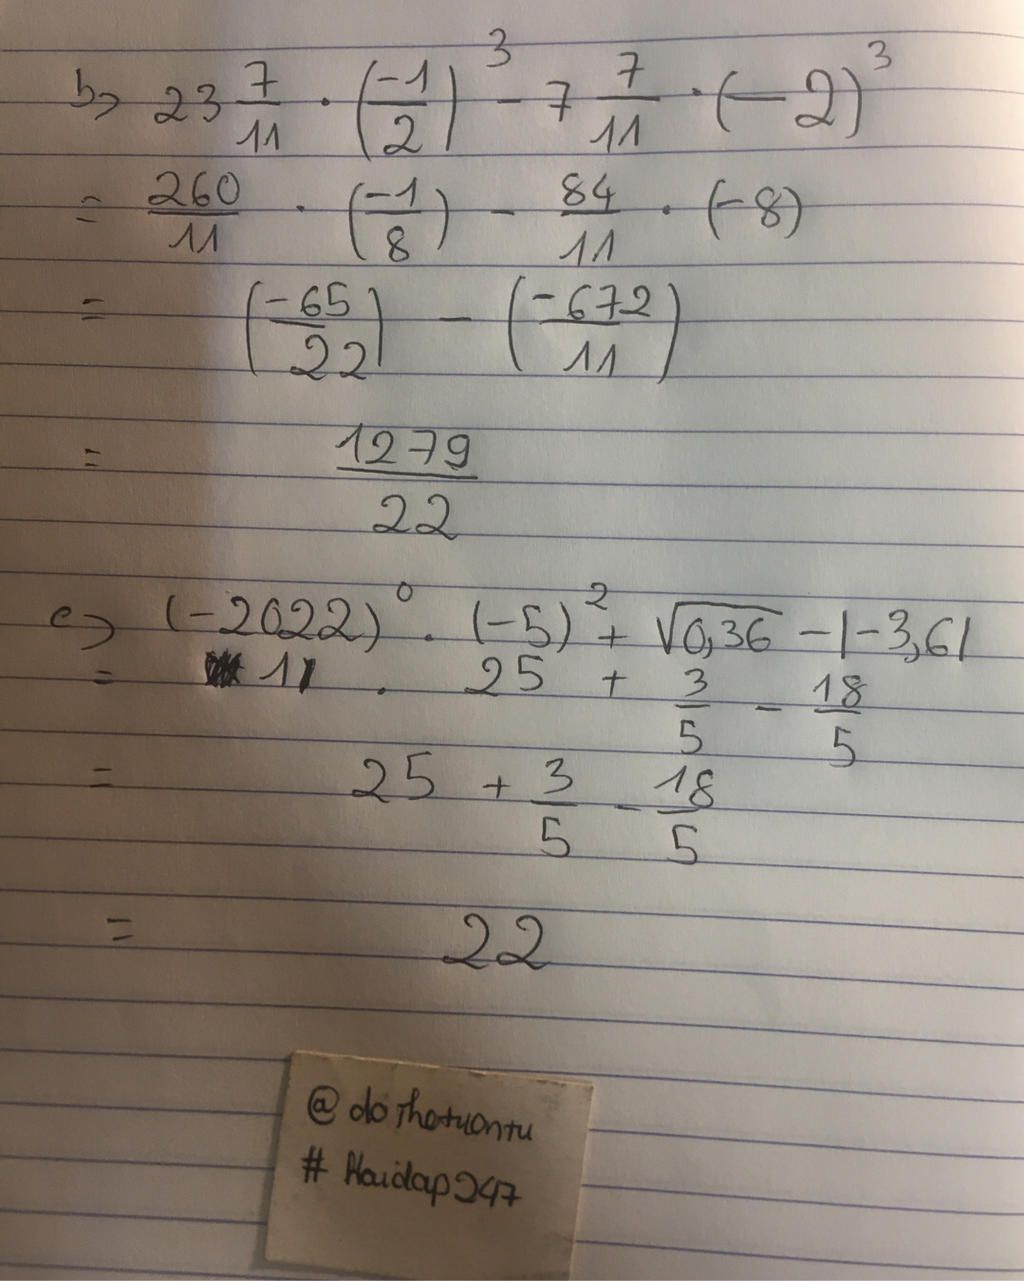 b> 23 7/11 . (-1/2)^3 - 7 7/11 . (-2)^3
= 260/11 . (-1/8) - 84/11 . (-8)
= (-65/22) - (-672/11)
= 1279/22
c> (-2022)^0 . (-5)^2 + √0,36 - |-3,6|
= 1 . 25 + 3/5 - 18/5
= 25 + 3/5 - 18/5
= 22
@dothotuontu
# Hoidap247